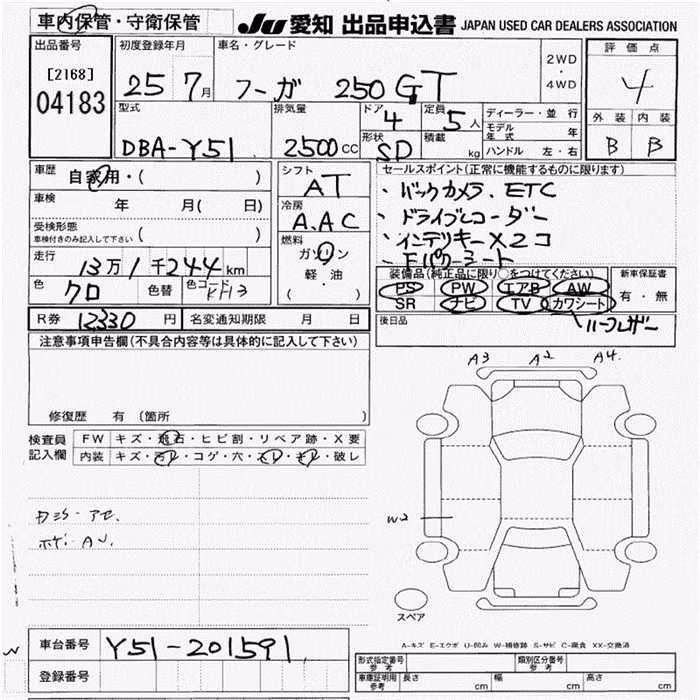 車内保管・守衛保管
JU 愛知 出品申込書 JAPAN USED CAR DEALERS ASSOCIATION
出品番号
[2168]
04183
初度登録年月
25 7月
車名・グレード
フーガ 250GT
2WD
・
4WD
評価点
4
外装 内装
B B
型式
DBA-Y51
排気量
2500cc
ドア
4
定員
5人
形状
SD
積載
kg
ディーラー・並行
モデル年式 年
ハンドル 左・右
車歴 自家用・( )
車検 年 月( 日)
受検形態
車検付きのみ記入して下さい ( )
走行 13万1千244km
色 クロ 色替 色コード KH3
シフト
AT
冷房
A.AC
燃料
ガソリン
軽・油
( )
セールスポイント(正常に機能するものに限ります)
・バックカメラ. ETC
・ドライブレコーダー
・インテリキーX2コ
・Fパワーシート
装備品(純正品に限り○をつけてください)
PS PW エアB AW
SR ナビ TV カワシート
新車保証書
有・無
後日品
ハーフレザー
R券 12330円 名変通知期限 月 日
注意事項申告欄(不具合内容等は具体的に記入して下さい)
修復歴 有〔箇所 〕
検査員
記入欄
FW キズ・飛石・ヒビ割・リペア跡・X要
内装 キズ・汚レ・コゲ・穴・スレ・キレ・破レ
A3 A2 A4.
W2
スペア
A-キズ E-エクボ U-凹み W-補修跡 S-サビ C-腐食 XX-交換済
車台番号 Y51-201591
登録番号
型式指定番号
参考
類別区分番号
参考
車庫証明用
参考
長さ cm 幅 cm 高さ cm